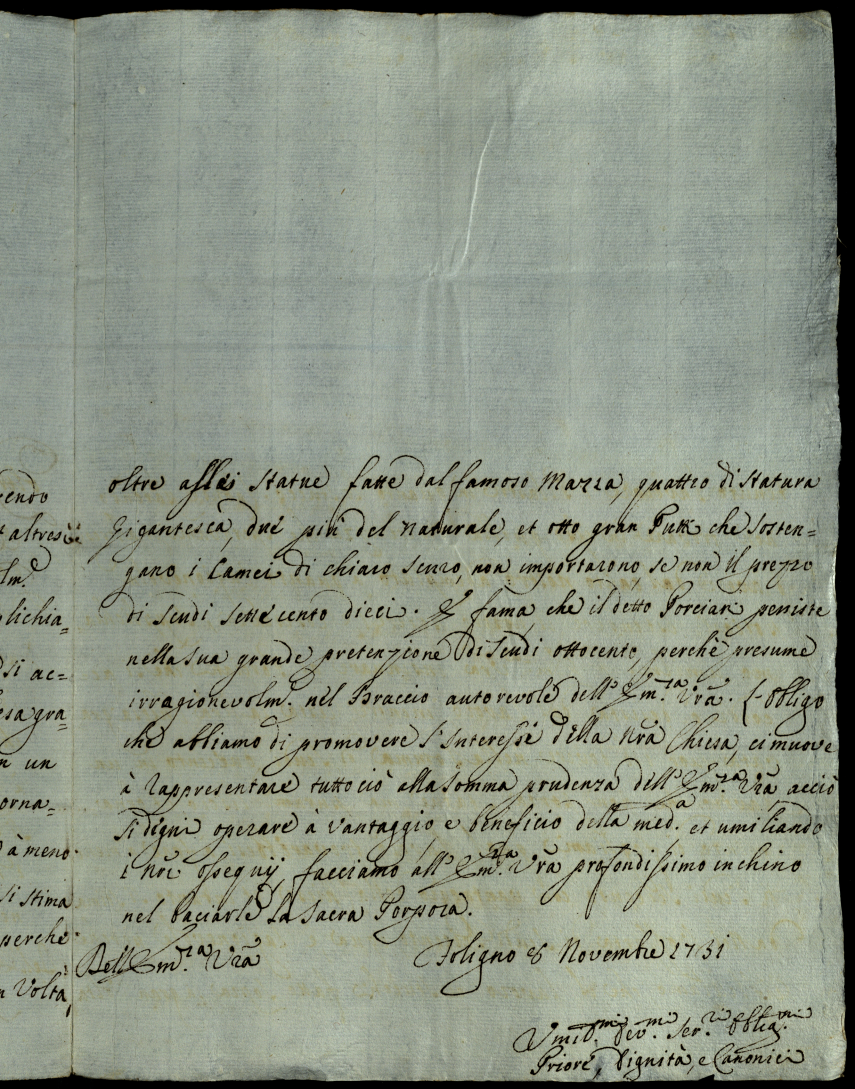 rendo
t altresì
lm.e
lichia=
si ac=
esa gra=
n un
orna=
à meno
si stima
perche
n Volta,
oltre assai statue fatte dal famoso Mazza, quattro di statura
Gigantesca, due più del naturale, et otto gran Putti che sosten=
gano i Camei di chiaro scuro, non importarono, se non il prezzo
di scudi settecento dieci. È fama, che il detto Porciari peniste
nella sua grande pretenzione di scudi ottocento, perche presume
irragionevolm.te nel Braccio autorevole dell' Em.za Vr̃a. L'obligo
che abbiamo di promovere l'Interesse della Nr̃a Chiesa, ci muove
à rappresentare tutto ciò alla somma prudenza dell' Em.za Vr̃a, acciò
si digni operare à vantaggio e beneficio della med.a et umiliando
i nr̃i ossequij, facciamo all' Em.za Vr̃a profondissimo inchino
nel baciarle la Sacra Porpora.
Dell' Em.za Vr̃a
Foligno 8 Novembre 1731
Umil.mi Dev.mi Ser.ri Oblig.mi
Priore, Dignità, e Canonici